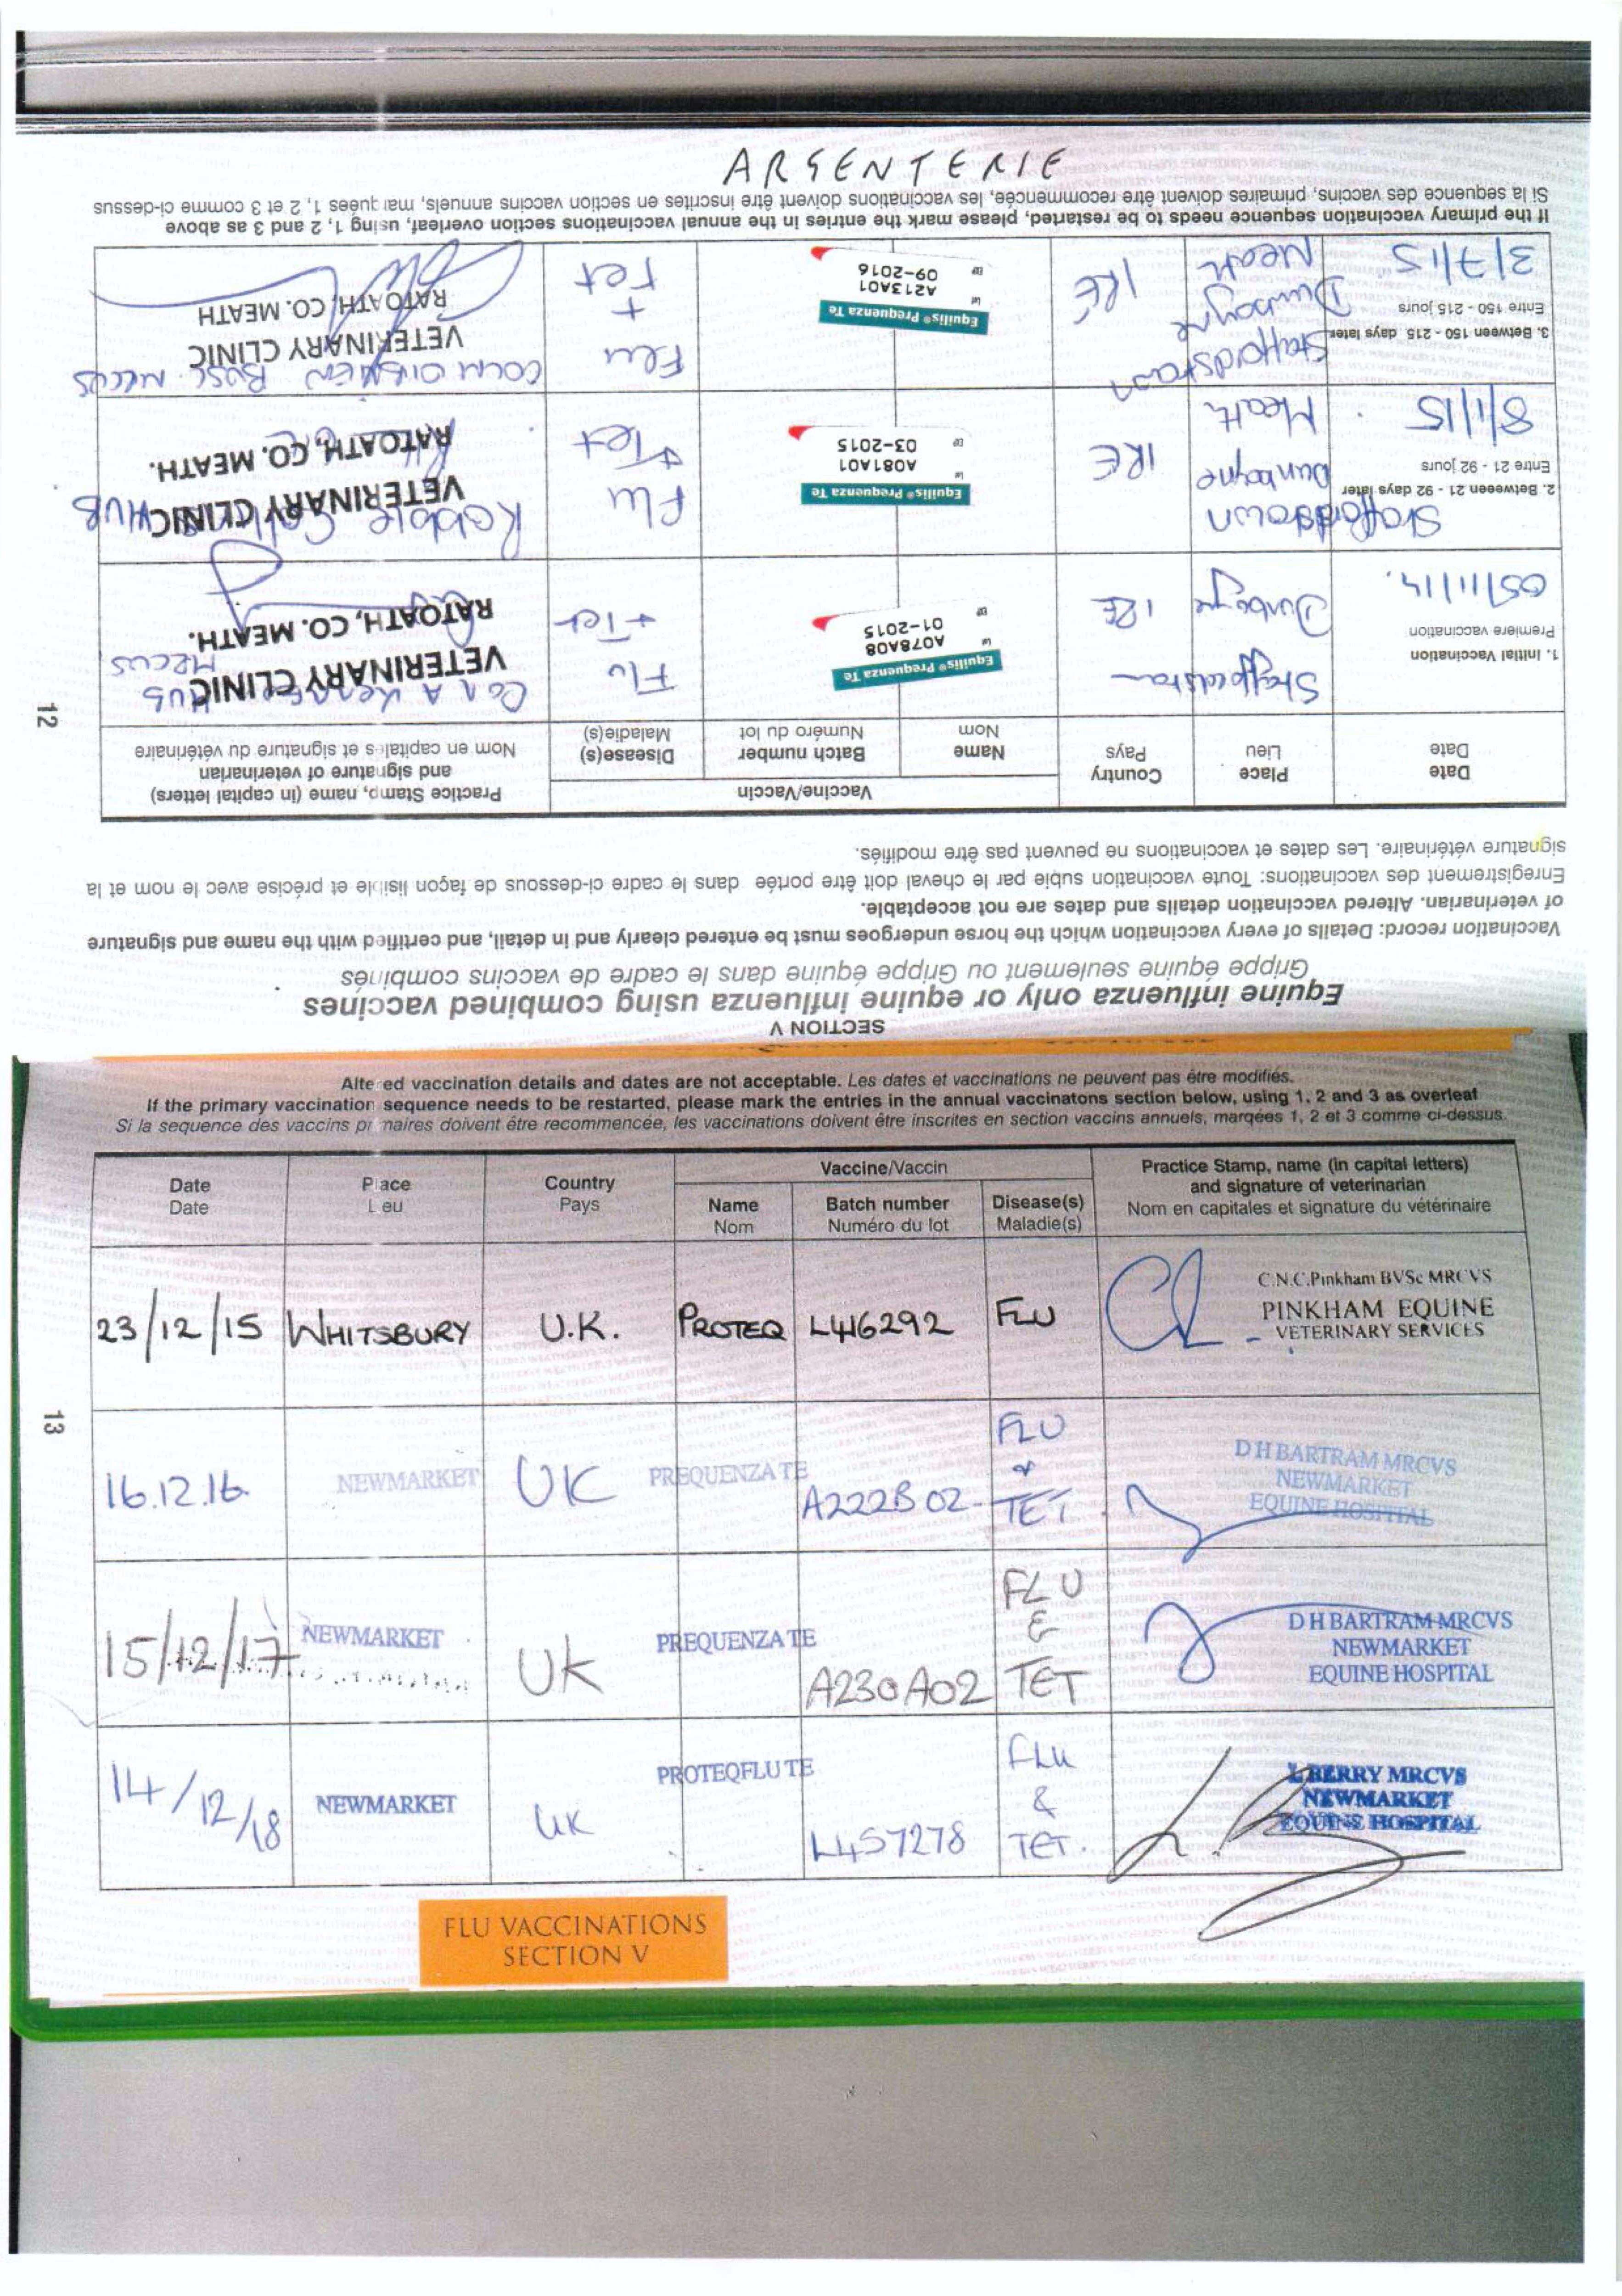 ARGENTERIE
12
SECTION V
Equine influenza only or equine influenza using combined vaccines
Grippe équine seulement ou Grippe équine dans le cadre de vaccins combinés
Vaccination record: Details of every vaccination which the horse undergoes must be entered clearly and in detail, and certified with the name and signature
of veterinarian. Altered vaccination details and dates are not acceptable.
Enregistrement des vaccinations: Toute vaccination subie par le cheval doit être portée dans le cadre ci-dessous de façon lisible et précise avec le nom et la
signature vétérinaire. Les dates et vaccinations ne peuvent pas être modifiés.
Date
Date
Place
Lieu
Country
Pays
Vaccine/Vaccin
Name
Nom
Batch number
Numéro du lot
Disease(s)
Maladie(s)
Practice Stamp, name (in capital letters)
and signature of veterinarian
Nom en capitales et signature du vétérinaire
1. Initial Vaccination
Première vaccination
05/11/14.
Staffordstown
Dunboyne
IRE
Equilis® Prequenza Te
Lot
A078A08
EXP
01-2015
Flu
+ Tet
MRCVS
VETERINARY CLINIC
RATOATH, CO. MEATH.
2. Between 21 - 92 days later
Entre 21 - 92 jours
8/1/15
Staffordstown
Dunboyne
Meath
IRE
Equilis® Prequenza Te
Lot
A081A01
EXP
03-2015
Flu
+Tet
Robbie
VETERINARY CLINIC
RATOATH, CO. MEATH.
3. Between 150 - 215 days later
Entre 150 - 215 jours
3/7/15
Staffordstown
Dunboyne
Meath
IRE
Equilis® Prequenza Te
Lot
A213A01
EXP
09-2016
Flu
+
Tet
MRCVS
VETERINARY CLINIC
RATOATH, CO. MEATH
If the primary vaccination sequence needs to be restarted, please mark the entries in the annual vaccinations section overleaf, using 1, 2 and 3 as above
Si la sequence des vaccins, primaires doivent être recommencée, les vaccinations doivent être inscrites en section vaccins annuels, marquées 1, 2 et 3 comme ci-dessus
Altered vaccination details and dates are not acceptable. Les dates et vaccinations ne peuvent pas être modifiés.
If the primary vaccination sequence needs to be restarted, please mark the entries in the annual vaccinatons section below, using 1, 2 and 3 as overleaf
Si la sequence des vaccins primaires doivent être recommencée, les vaccinations doivent être inscrites en section vaccins annuels, marqées 1, 2 et 3 comme ci-dessus.
Date
Date
Place
Lieu
Country
Pays
Vaccine/Vaccin
Name
Nom
Batch number
Numéro du lot
Disease(s)
Maladie(s)
Practice Stamp, name (in capital letters)
and signature of veterinarian
Nom en capitales et signature du vétérinaire
23/12/15 WHITSBURY U.K. PROTEQ L416292 FLU
C.N.C.Pinkham BVSc MRCVS
PINKHAM EQUINE
VETERINARY SERVICES
13
16.12.16. NEWMARKET UK PREQUENZA TE A222B02 FLU & TET
D H BARTRAM MRCVS
NEWMARKET
EQUINE HOSPITAL
15/12/17 NEWMARKET UK PREQUENZA TE A230A02 FLU & TET
D H BARTRAM MRCVS
NEWMARKET
EQUINE HOSPITAL
14/12/18 NEWMARKET UK PROTEQFLU TE L457278 FLU & TET.
L BERRY MRCVS
NEWMARKET
EQUINE HOSPITAL
FLU VACCINATIONS
SECTION V